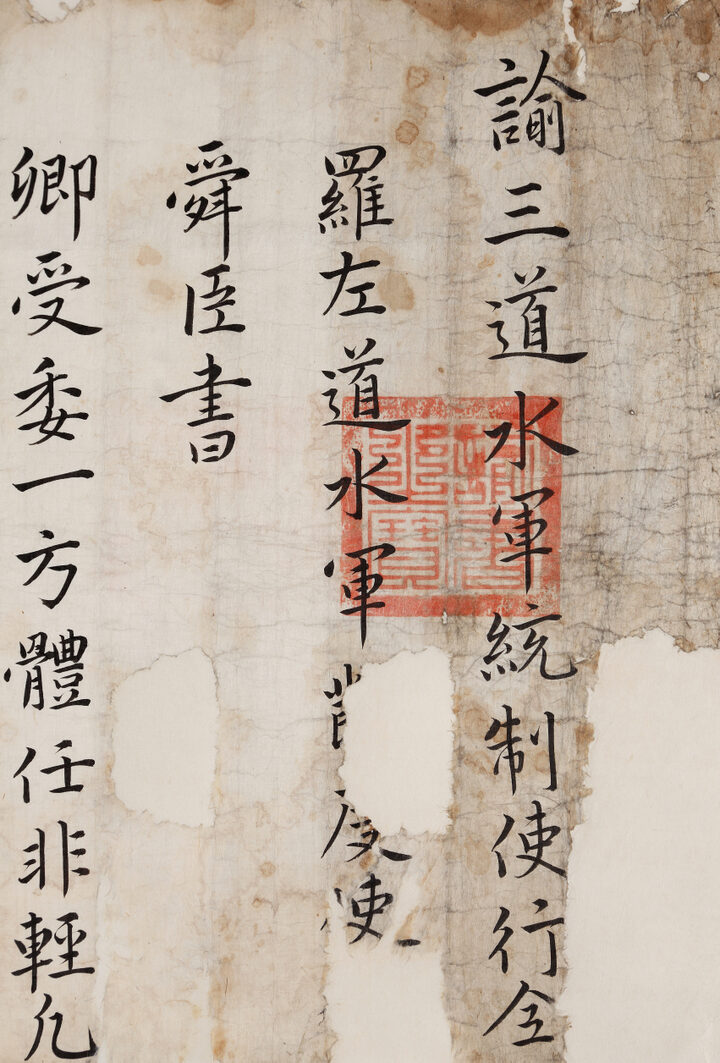 諭三道水軍統制使行全
羅左道水軍度使
舜臣書
卿受委一方體任非輕凡